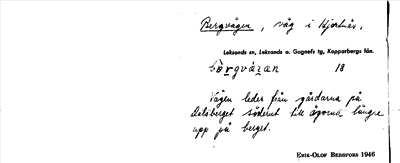 Bergvägen, väg i Hjortnäs,
Leksands sn, Leksands o. Gagnefs tg, Kopparbergs län.
18
Vägen leder från gårdarna på
söderut till ägorna längre
upp på berget.
ERIK-OLOF BERGFORS 1946